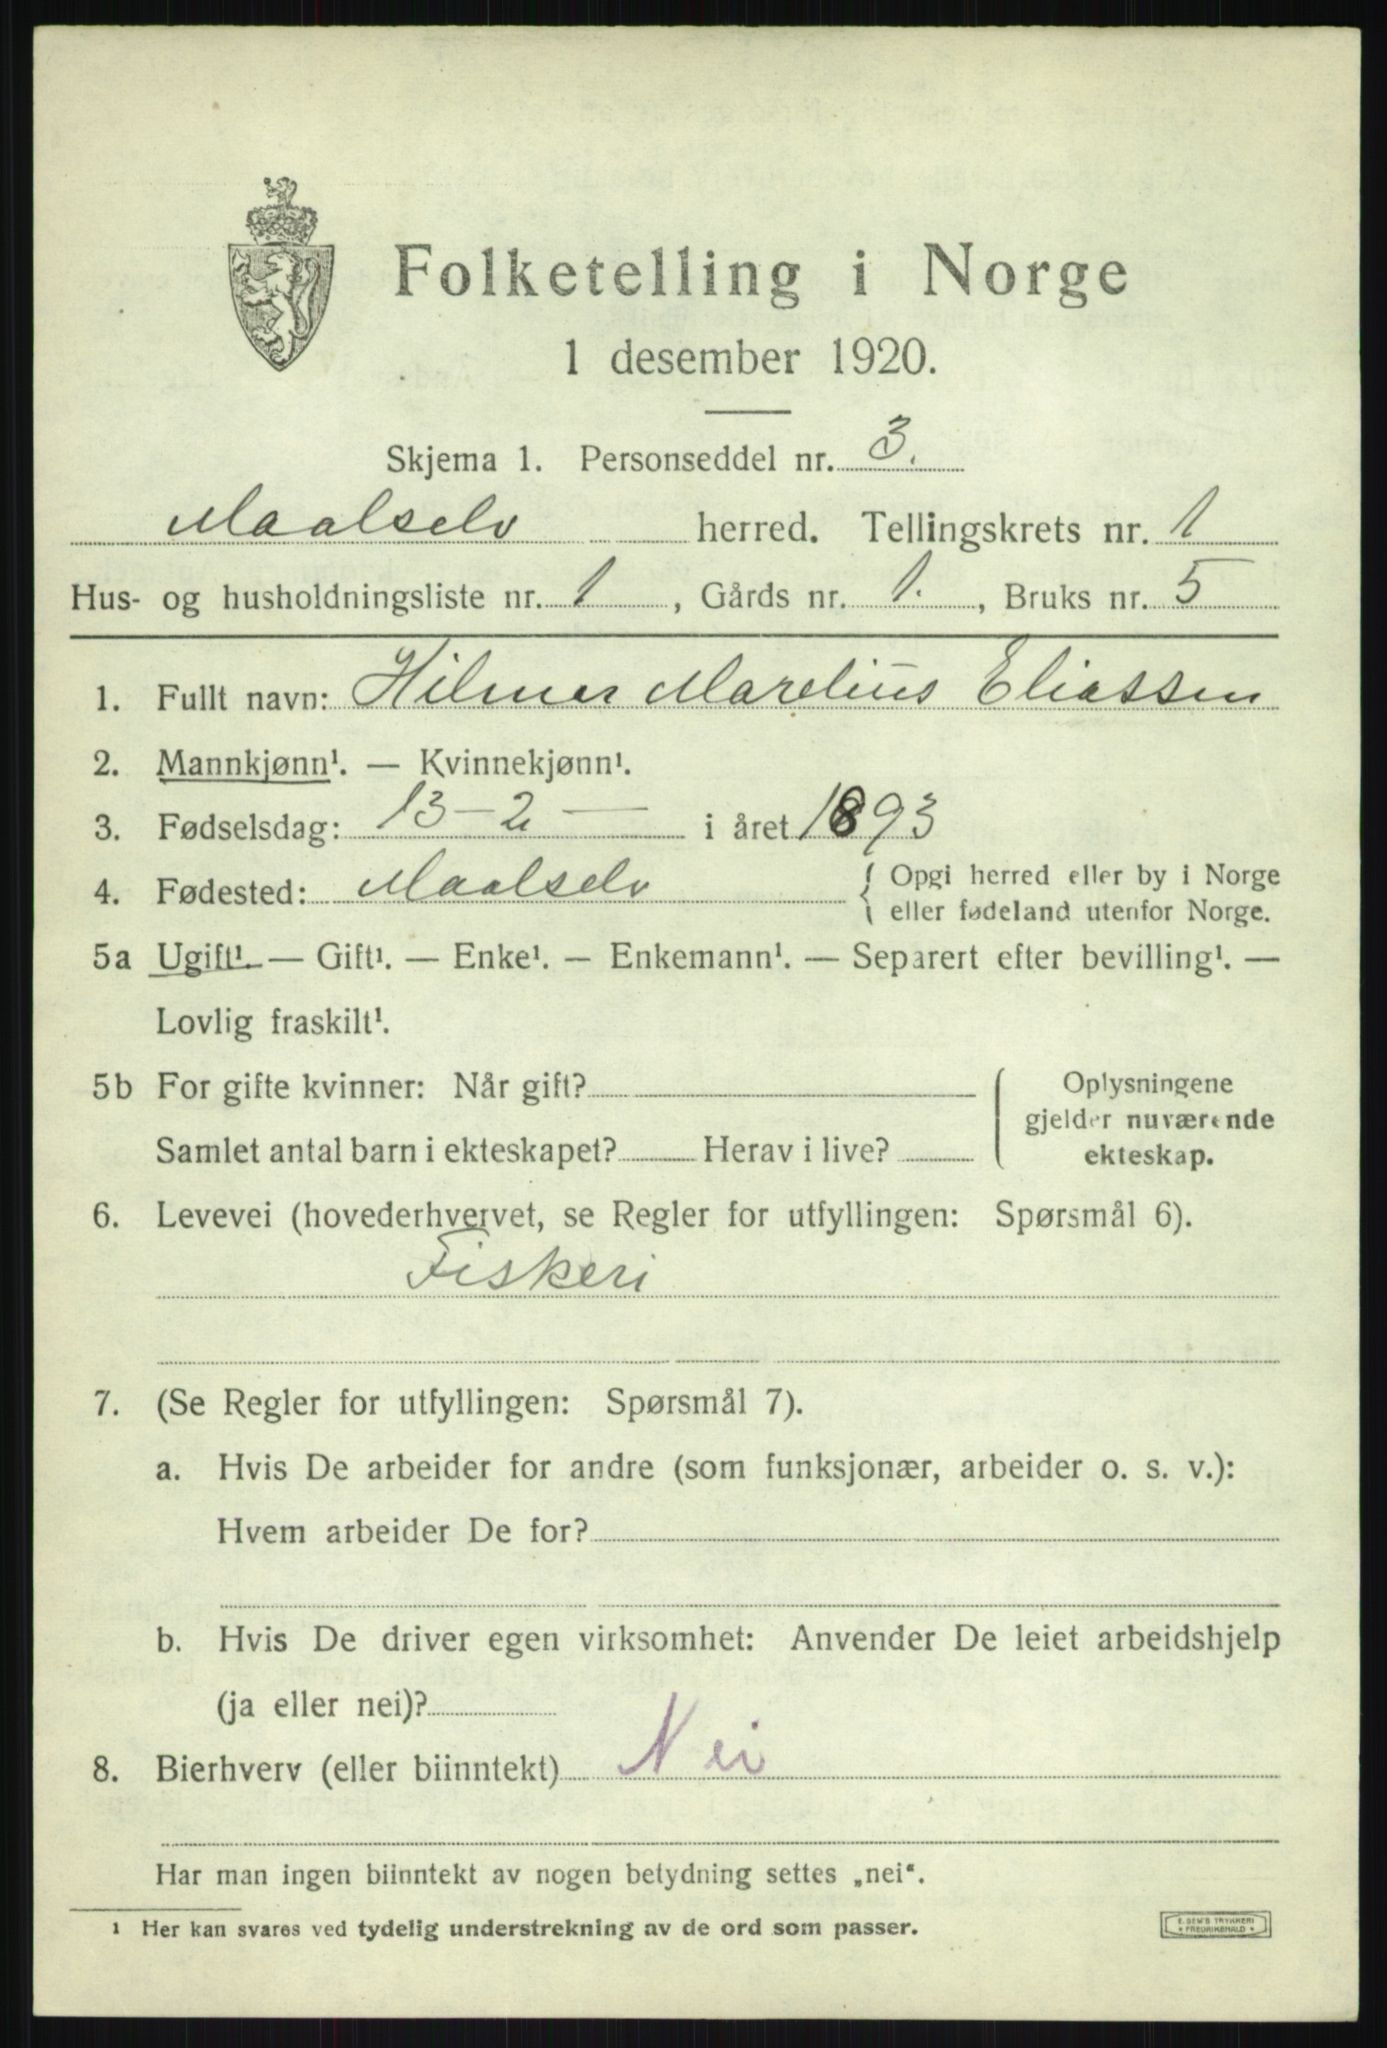 Folketelling i Norge
1 desember 1920.
Skjema 1. Personseddel nr. 3.
Maalselv herred. Tellingskrets nr. 1
Hus- og husholdningsliste nr. 1, Gårds nr. 1., Bruks nr. 5
1. Fullt navn: Hilmar Marelius Eliassen
2. Mannkjønn¹. — Kvinnekjønn¹.
3. Fødselsdag: 13-2 — i året 1893
4. Fødested: Maalselv { Opgi herred eller by i Norge
eller fødeland utenfor Norge.
5a Ugift¹. — Gift¹. — Enke¹. — Enkemann¹. — Separert efter bevilling¹. —
Lovlig fraskilt¹.
5b For gifte kvinner: Når gift? Oplysningene
gjelder nuværende
Samlet antal barn i ekteskapet? Herav i live? ekteskap.
6. Levevei (hovederhvervet, se Regler for utfyllingen: Spørsmål 6).
Fiskeri
7. (Se Regler for utfyllingen: Spørsmål 7).
a. Hvis De arbeider for andre (som funksjonær, arbeider o. s. v.):
Hvem arbeider De for?
b. Hvis De driver egen virksomhet: Anvender De leiet arbeidshjelp
(ja eller nei)?
8. Bierhverv (eller biinntekt) Nei
Har man ingen biinntekt av nogen betydning settes „nei“.
¹ Her kan svares ved tydelig understrekning av de ord som passer.
E. SEM'S TRYKKERI
* FREDRIKSHALD *